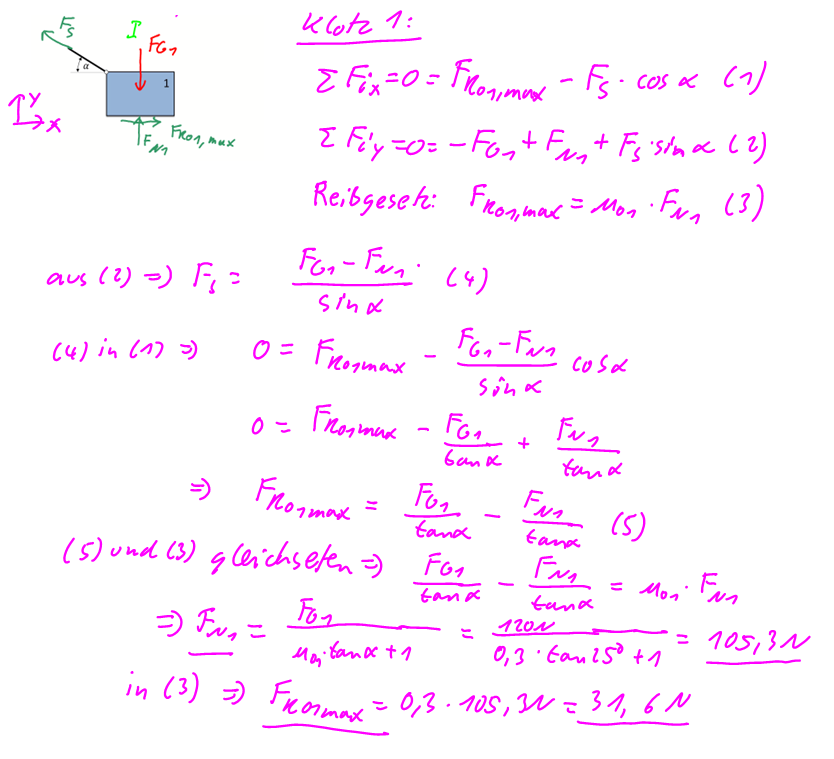 Klotz 1:
F_S
I
F_G1
α
1
y
x
F_N1
F_R01,max
ΣF_ix = 0 = F_R01,max - F_S · cos α (1)
ΣF_iy = 0 = -F_G1 + F_N1 + F_S · sin α (2)
Reibgesetz: F_R01,max = μ_01 · F_N1 (3)
aus (2) => F_S = (F_G1 - F_N1) / sin α (4)
(4) in (1) => 0 = F_R01max - (F_G1 - F_N1) / sin α cos α
0 = F_R01max - F_G1 / tan α + F_N1 / tan α
=> F_R01max = F_G1 / tan α - F_N1 / tan α (5)
(5) und (3) gleichsetzen => F_G1 / tan α - F_N1 / tan α = μ_01 · F_N1
=> F_N1 = F_G1 / (μ_01 · tan α + 1) = 120N / (0,3 · tan 25° + 1) = 105,3N
in (3) => F_R01max = 0,3 · 105,3N = 31,6N